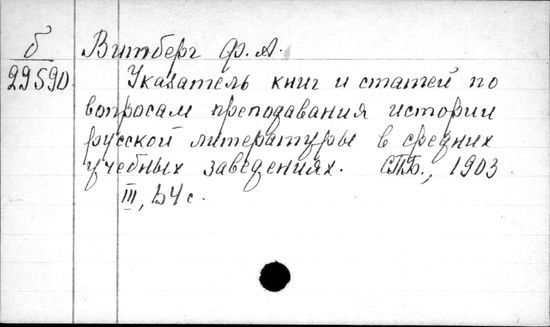 б
29590
Витберг Ф. А.
Указатель книг и статей по
вопросам преподавания истории
русской литературы в средних
учебных заведениях. СПб., 1903.
III, 54 с.